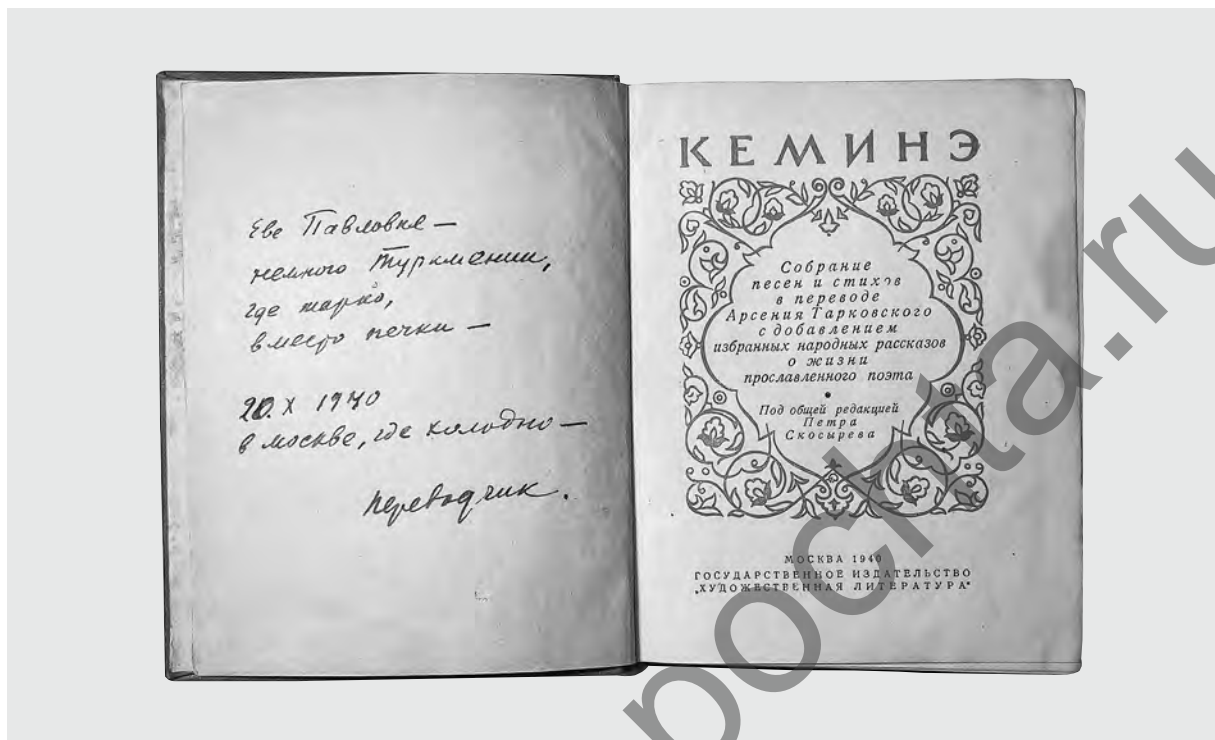 Еве Павловне —
немного Туркмении,
где жарко,
вместо печки —
20.X 1940
в москве, где холодно —
переводчик.
КЕМИНЭ
Собрание
песен и стихов
в переводе
Арсения Тарковского
с добавлением
избранных народных рассказов
о жизни
прославленного поэта
•
Под общей редакцией
Петра
Скосырева
МОСКВА 1940
ГОСУДАРСТВЕННОЕ ИЗДАТЕЛЬСТВО
„ХУДОЖЕСТВЕННАЯ ЛИТЕРАТУРА"
pochta.ru